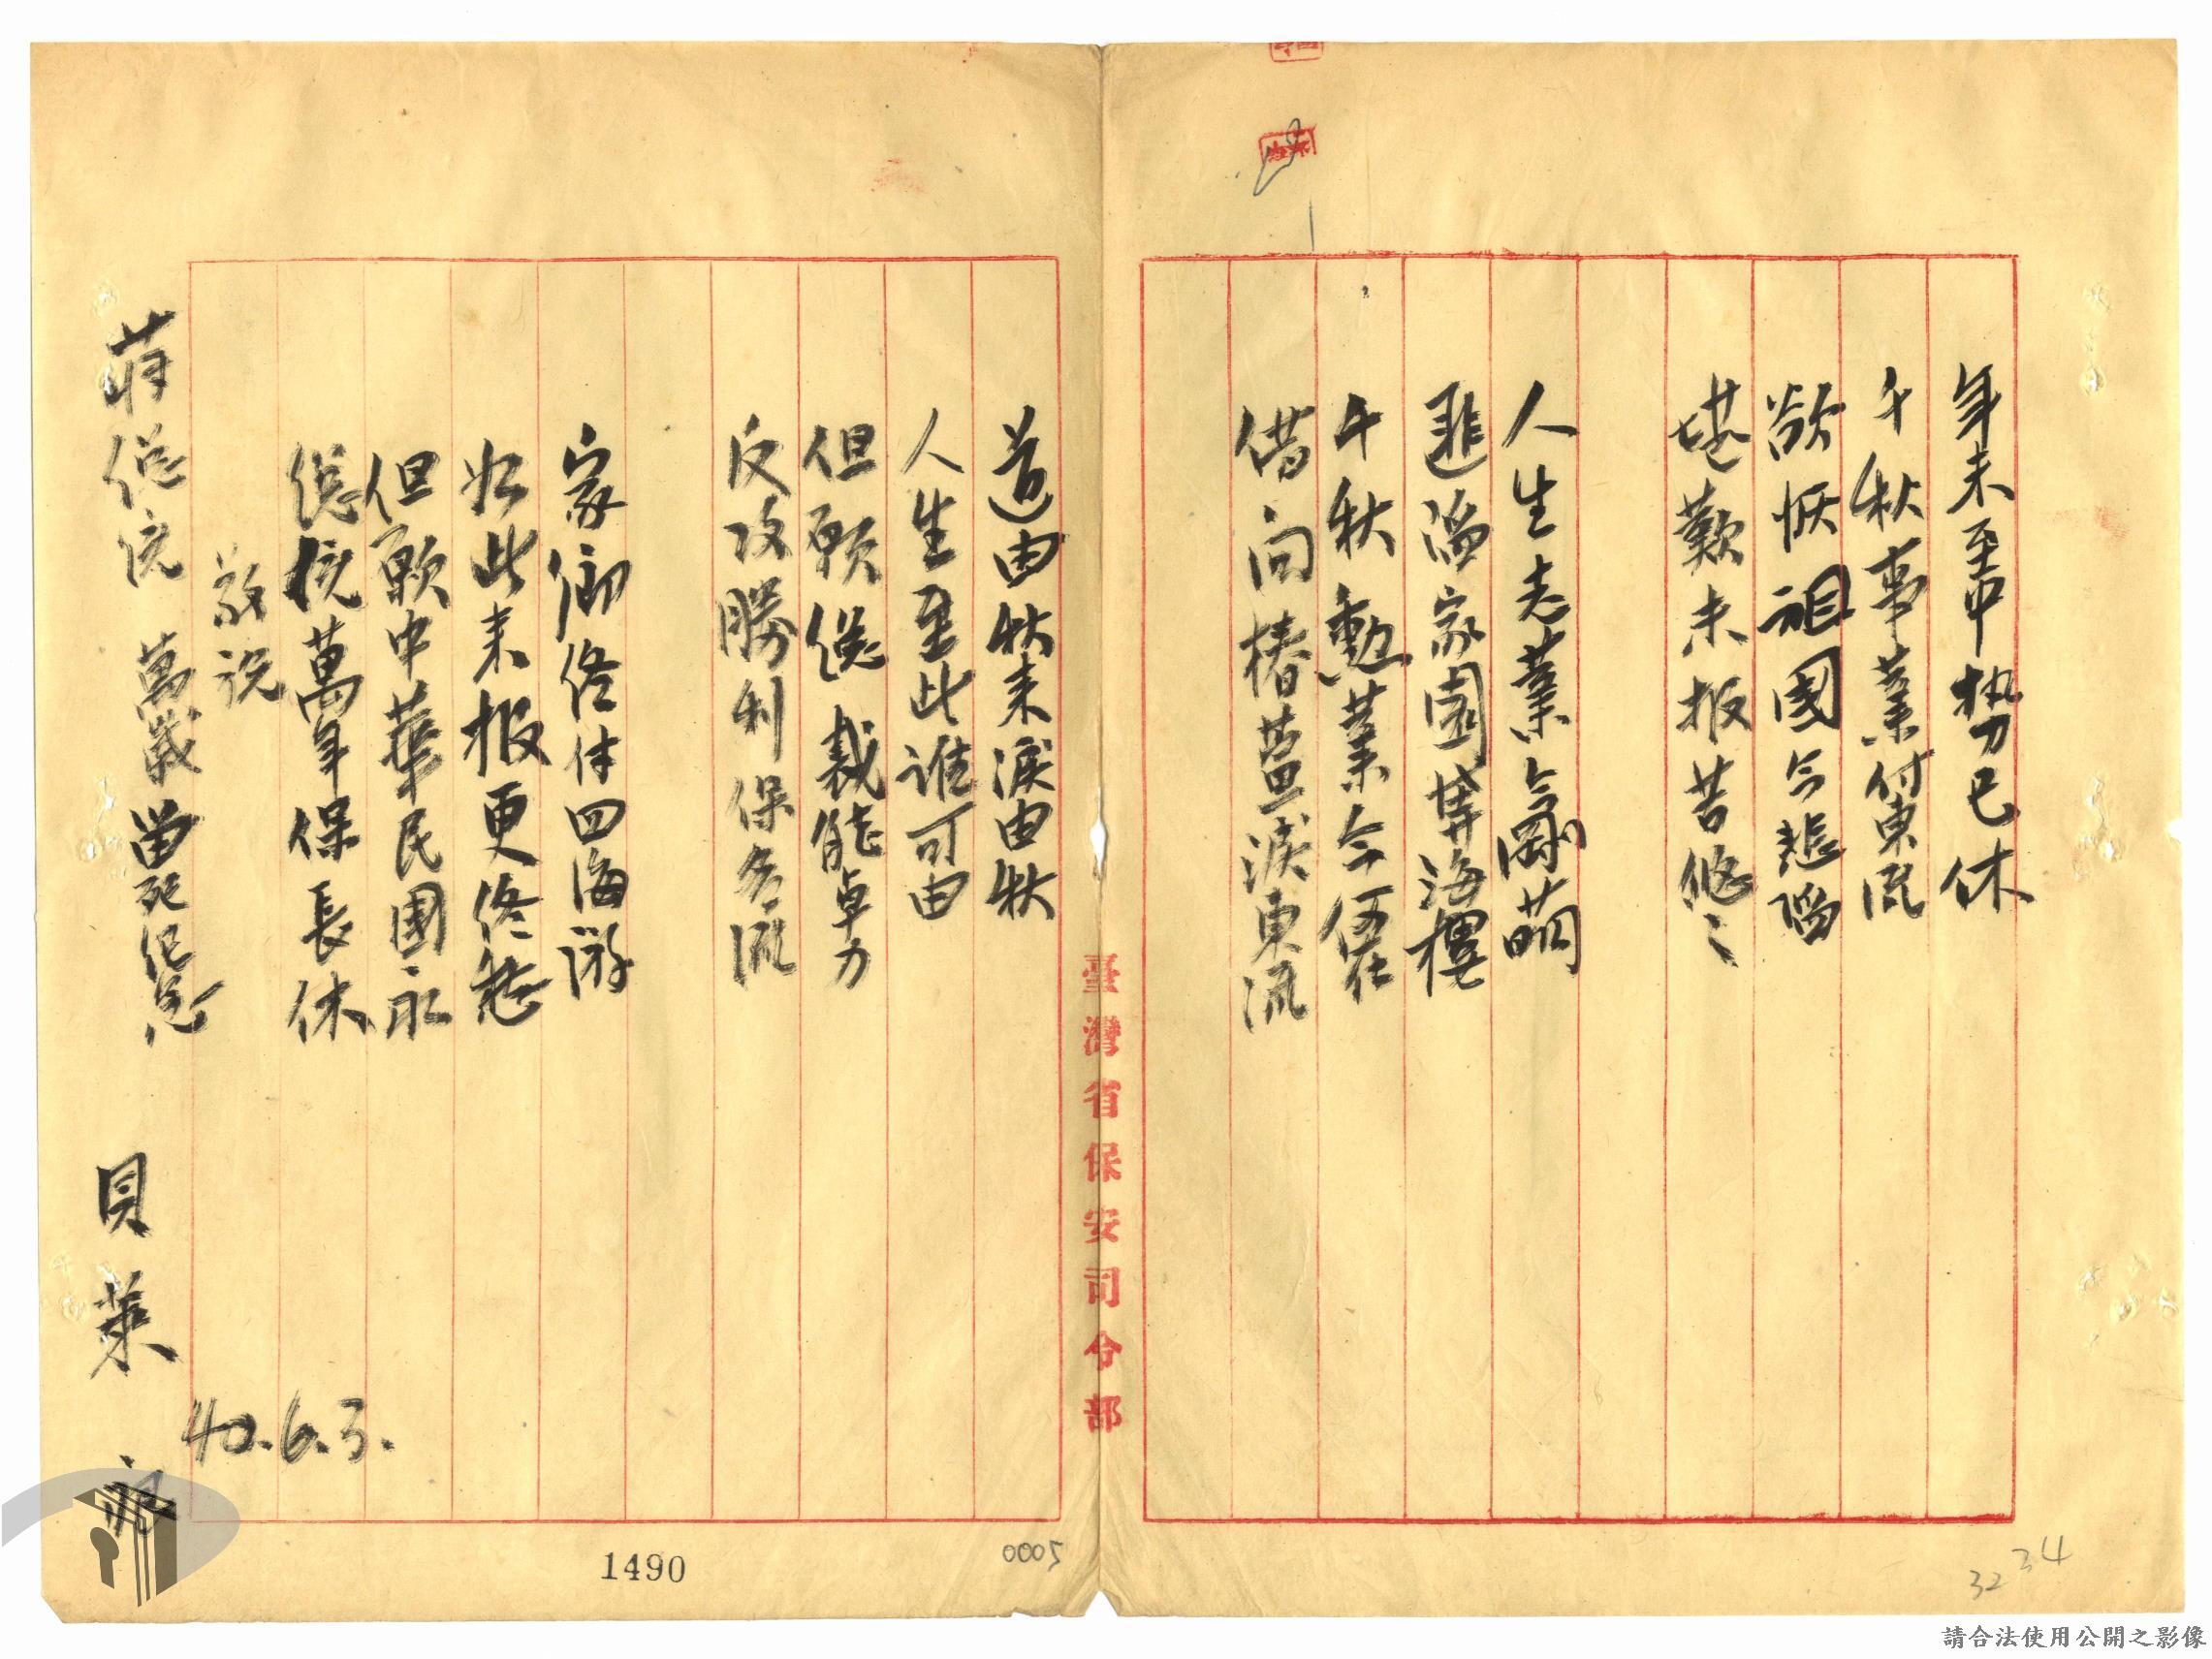 年未至中勢已休
千秋事業付東流
欲恢祖國今悲陷
堪歎未报苦悠〻
人生志業今剛萌
匪陷家園葬海樓
千秋勳業今何在
借问椿萱淚東流
道由狀来淚由狀
人生至此誰可由
但願總裁能卓力
反攻勝利保名流
家鄉佟佯四海游
如此未报更佟愁
但願中華民國永
總統萬年保長休
敬祝
蔣總统 萬歲 留死纪念
貝萊
40.6.3.
臺灣省保安司令部
1490
0005
32 34
請合法使用公開之影像